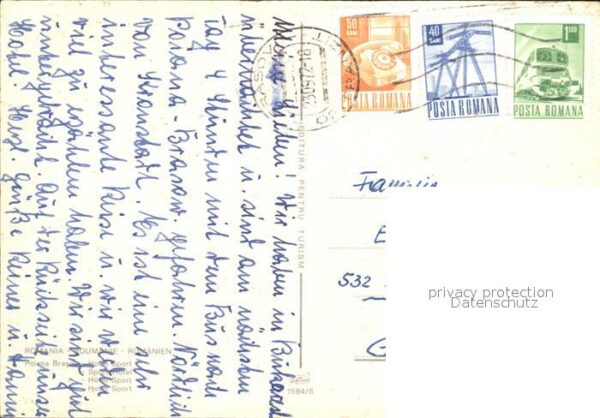 Meine Lieben! Wir haben in Bukarest
übernachtet u. sind am nächsten
Tag 4 Stunden mit dem Bus nach
Poiana-Brasov gefahren. Nördlich
von Kronstadt. Es ist eine sehr
interessante Reise u. wir werden
viel zu erzählen haben. Wir sind gut
untergebracht. Auf der Rückseite unser
Hotel. Herzl. Grüße
ROMANIA - ROUMANIE - RUMÄNIEN
Poiana Brașov - Hotel Sport
Sport Hotel
Hôtel Sport
Hotel Sport
EDITURA PENTRU TURISM
1584/5
50
BANI
POSTA ROMANA
40
BANI
POSTA ROMANA
1 LEU
POSTA ROMANA
Familie
532
privacy protection
Datenschutz